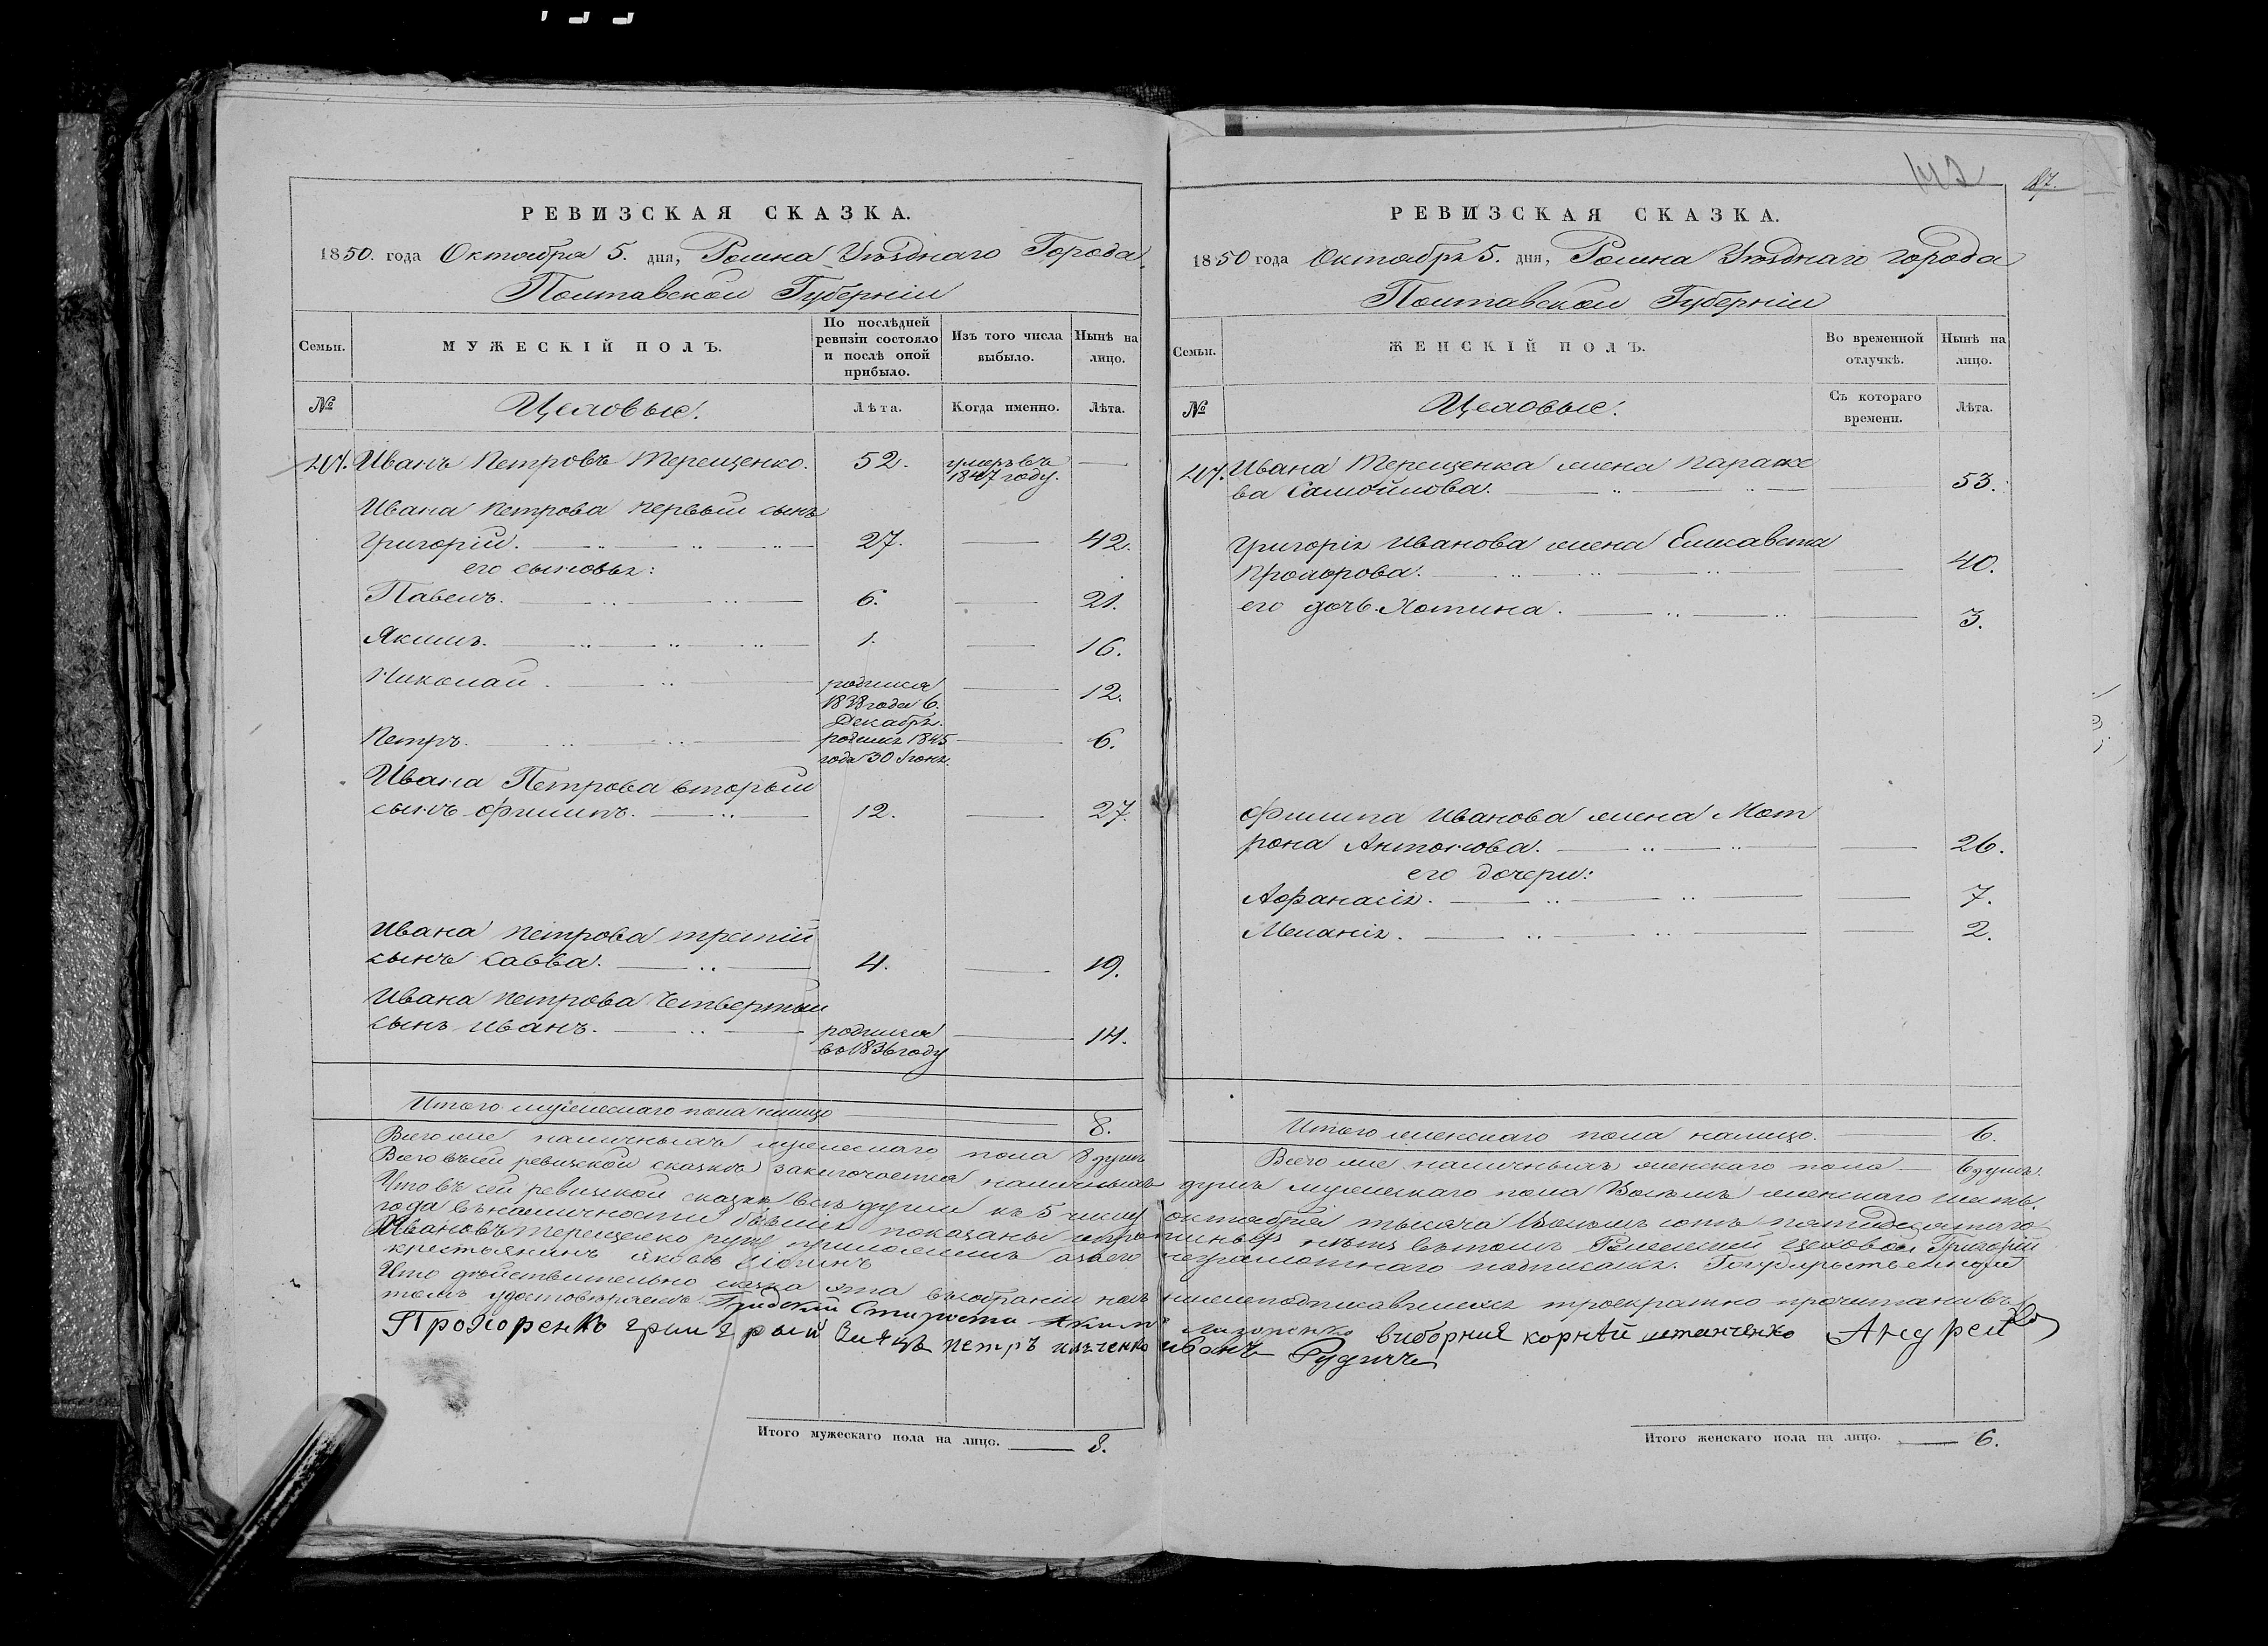 РЕВИЗСКАЯ СКАЗКА.
1850. года Октября 5. дня, Ромна Уѣзднаго Города,
Полтавской Губерніи
Семьи.
МУЖЕСКІЙ ПОЛЪ.
По послѣдней ревизіи состояло и послѣ оной прибыло.
Изъ того числа выбыло.
Нынѣ на лицо.
№
Цеховые.
Лѣта.
Когда именно.
Лѣта.
Иванъ Петровъ Терещенко. 52. умеръ въ
1847 году.
Ивана Петрова первый сынъ
Григорій. 27. 42.
его сыновья:
Павелъ. 6. 21.
Якимъ. 1. 16.
Николай. родился 12.
1838 года 6.
Декабря.
Петръ. родился 1845 6.
года 30 Іюня.
Ивана Петрова вторый
сынъ Филипъ. 12. 27.
Ивана Петрова третій
сынъ Савва. 4. 19.
Ивана Петрова Четвертый
сынъ Иванъ. родился 14.
въ 1836 году
Итого мужескаго пола налицо 8.
Всего же наличныхъ мужескаго пола 8 душъ
Итого мужескаго пола на лицо. 8.
142
87.
РЕВИЗСКАЯ СКАЗКА.
1850 года Октября 5. дня, Ромна Уѣзднаго города
Полтавской Губерніи
Семьи.
ЖЕНСКІЙ ПОЛЪ.
Во временной отлучкѣ.
Нынѣ на лицо.
№
Цеховые.
Съ котораго времени.
Лѣта.
Ивана Терещенка жена Параске
ва Самойлова. 53.
Григорія Иванова жена Елисавета
Прохорова. 40.
его дочь Хотина. 3.
Филипа Иванова жена Мот
рона Антонова. 26.
его дочери:
Афанасія. 7.
Меланія. 2.
Итого женскаго пола налицо. 6.
Всего же наличныхъ женскаго пола 6 душъ.
Всего въ сей ревизской сказкѣ заключается наличныхъ душъ мужескаго пола Восемь женскаго шесть.
Что въ сей ревизской сказкѣ всѣ души къ 5 числу октября тысяча Восемь сотъ пятидесятаго
года въ наличности бывшія показаны и пропиныхъ нѣтъ въ томъ Роменскій цеховой Григорій
Ивановъ Терещенко руку приложилъ а за него неграмотнаго подписался Государственный
крестьянинъ Яковъ
Что дѣйствительно сказка эта въ собраніи насъ нижеподписавшихся троекратно прочитана въ
томъ удостовѣряемъ Градскій Староста Якимъ виборния корнѣй Андрей
Прохоренко Григорый петръ иванъ Рудичъ
Итого женскаго пола на лицо. 6.